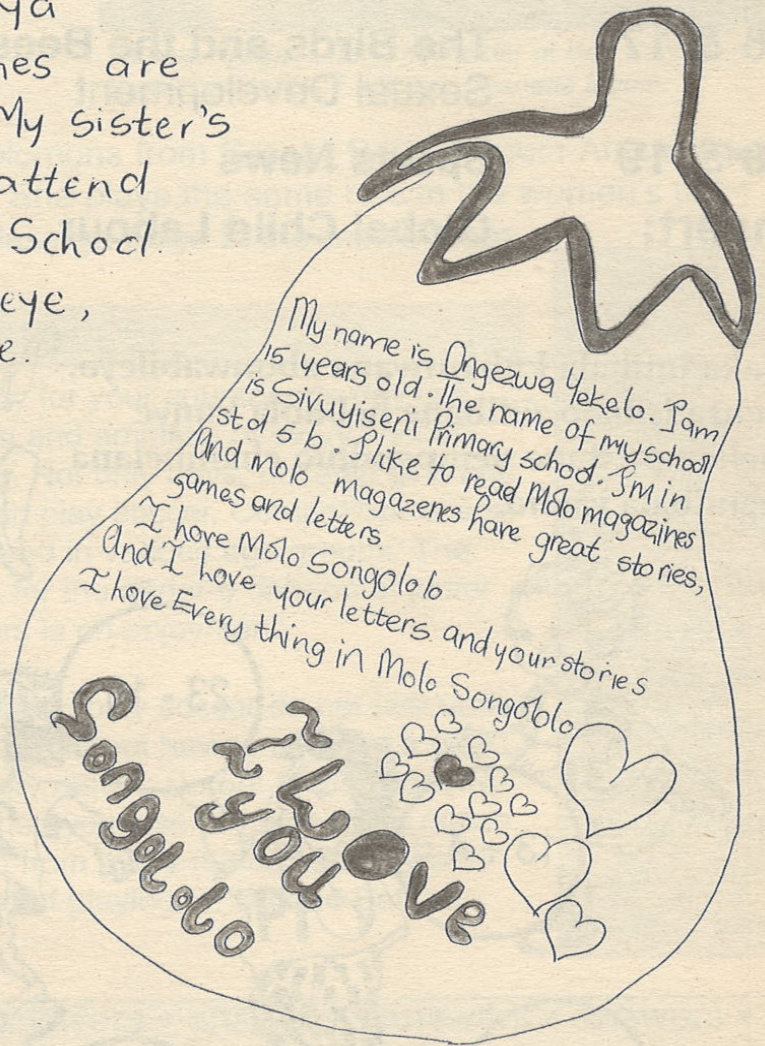 ya
nes are
My sister's
attend
School.
eye,
e.
My name is Ongezwa Yekelo. I am
15 years old. The name of my school
is Sivuyiseni Primary school. Im in
std 5 b. I like to read Molo magazines
And molo magazenes have great stories,
games and letters.
I hove Molo Songololo
And I hove your letters and your stories
I hove Every thing in Molo Songololo
~ I Love ~
you
Songololo